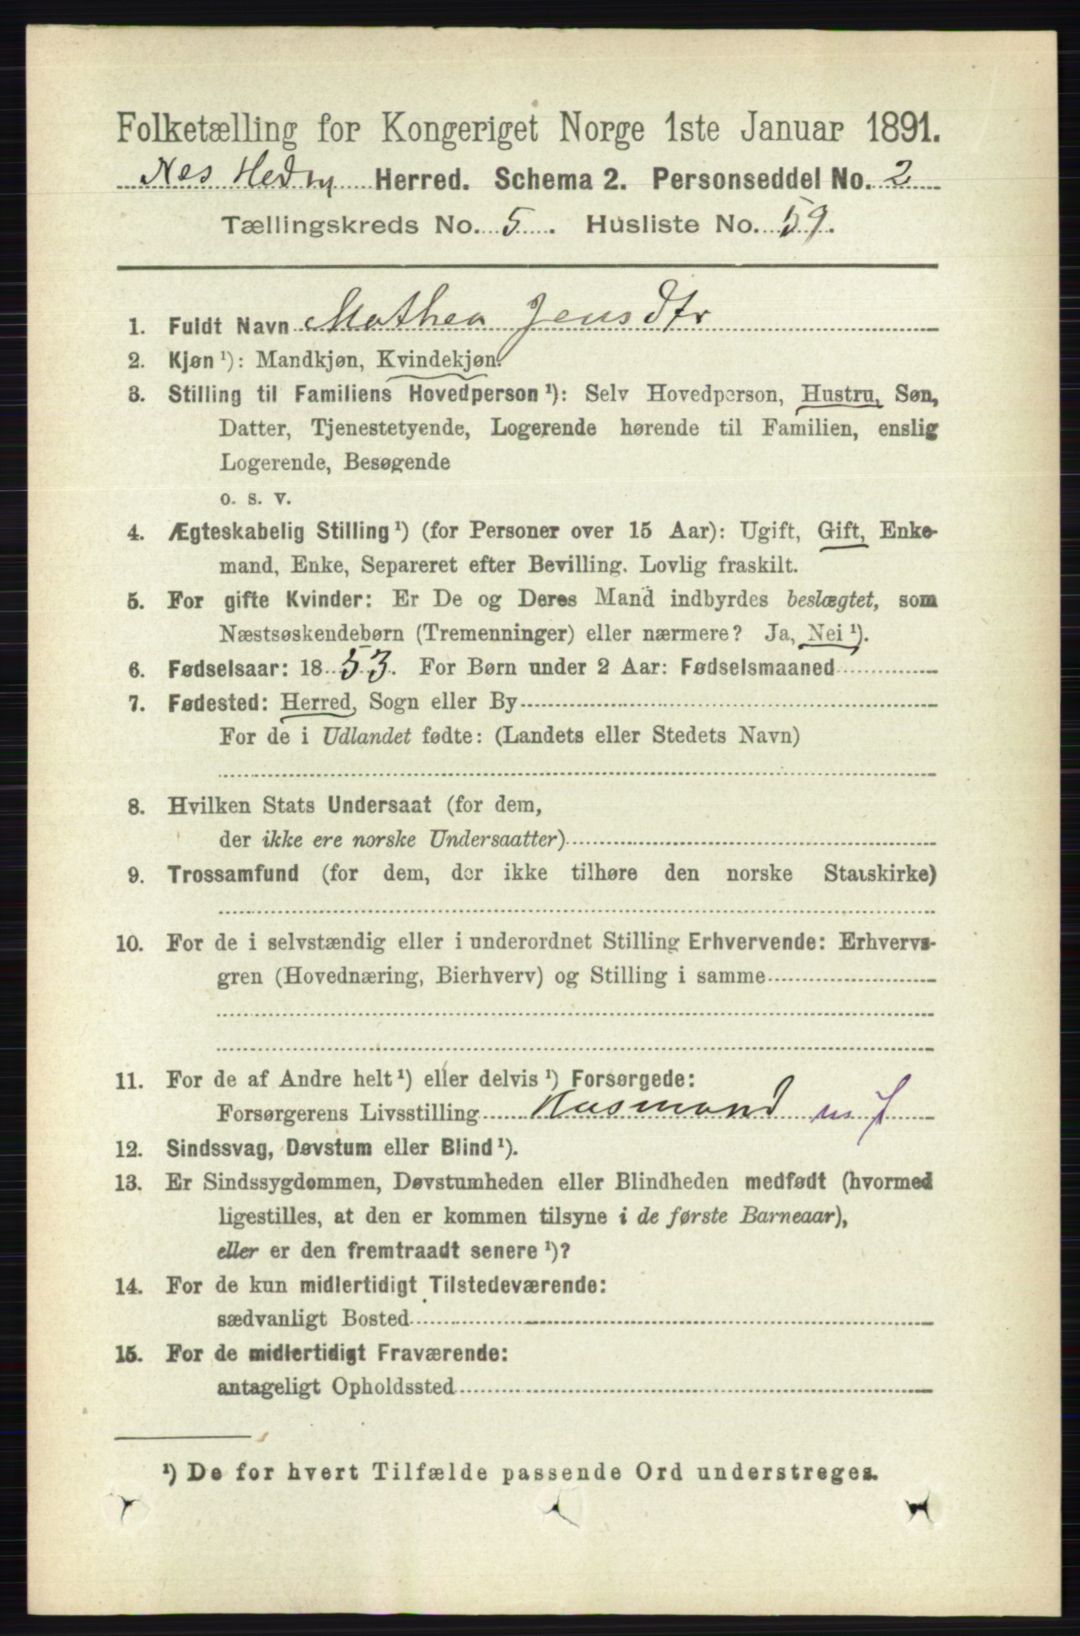 Folketælling for Kongeriget Norge 1ste Januar 1891.
Nes Hedm Herred. Schema 2. Personseddel No. 2
Tællingskreds No. 5. Husliste No. 59.
1. Fuldt Navn Mathea Jensdtr
2. Kjøn ¹): Mandkjøn, Kvindekjøn.
3. Stilling til Familiens Hovedperson ¹): Selv Hovedperson, Hustru, Søn,
Datter, Tjenestetyende, Logerende hørende til Familien, enslig
Logerende, Besøgende
o. s. v.
4. Ægteskabelig Stilling ¹) (for Personer over 15 Aar): Ugift, Gift, Enke-
mand, Enke, Separeret efter Bevilling. Lovlig fraskilt.
5. For gifte Kvinder: Er De og Deres Mand indbyrdes beslægtet, som
Næstsøskendebørn (Tremenninger) eller nærmere? Ja, Nei ¹).
6. Fødselsaar: 1853. For Børn under 2 Aar: Fødselsmaaned
7. Fødested: Herred, Sogn eller By
For de i Udlandet fødte: (Landets eller Stedets Navn)
8. Hvilken Stats Undersaat (for dem,
der ikke ere norske Undersaatter)
9. Trossamfund (for dem, der ikke tilhøre den norske Statskirke)
10. For de i selvstændig eller i underordnet Stilling Erhvervende: Erhvervs-
gren (Hovednæring, Bierhverv) og Stilling i samme
11. For de af Andre helt ¹) eller delvis ¹) Forsørgede:
Forsørgerens Livsstilling Husmand m J
12. Sindssvag, Døvstum eller Blind ¹).
13. Er Sindssygdommen, Døvstumheden eller Blindheden medfødt (hvormed
ligestilles, at den er kommen tilsyne i de første Barneaar),
eller er den fremtraadt senere ¹)?
14. For de kun midlertidigt Tilstedeværende:
sædvanligt Bosted
15. For de midlertidigt Fraværende:
antageligt Opholdssted
¹) De for hvert Tilfælde passende Ord understreges.